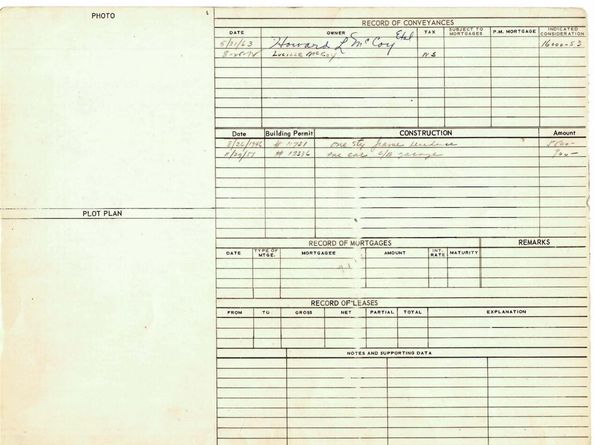 PHOTO
RECORD OF CONVEYANCES
DATE OWNER TAX SUBJECT TO MORTGAGES P.M. MORTGAGE INDICATED CONSIDERATION
5/21/63 Howard L McCoy Etal 16000-53
Lucille McCoy N.S
Date Building Permit CONSTRUCTION Amount
8/26/1946 one sty frame
one car garage
PLOT PLAN
RECORD OF MORTGAGES REMARKS
DATE TYPE OF MTGE. MORTGAGEE AMOUNT INT. RATE MATURITY
RECORD OF LEASES
FROM TO GROSS NET PARTIAL TOTAL EXPLANATION
NOTES AND SUPPORTING DATA